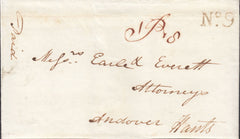 Paid
1/P8
No. 9
Messrs Earle & Everett
Attorneys
Andover Hants